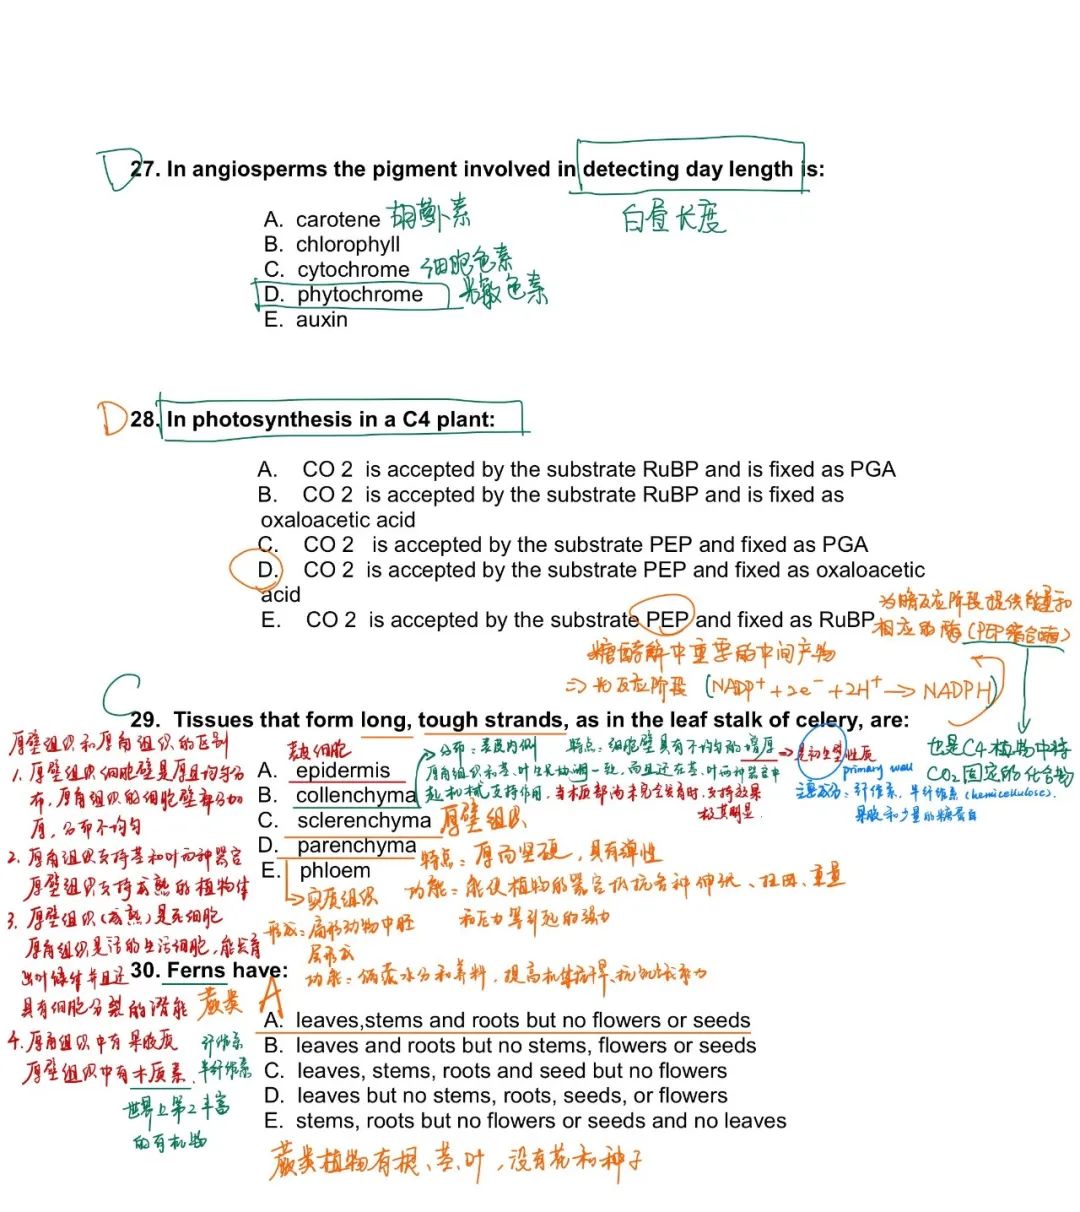 D
27. In angiosperms the pigment involved in detecting day length is:
白昼长度
A. carotene 胡萝卜素
B. chlorophyll
C. cytochrome 细胞色素
D. phytochrome 光敏色素
E. auxin
D
28. In photosynthesis in a C4 plant:
A. CO 2 is accepted by the substrate RuBP and is fixed as PGA
B. CO 2 is accepted by the substrate RuBP and is fixed as
oxaloacetic acid
C. CO 2 is accepted by the substrate PEP and fixed as PGA
D. CO 2 is accepted by the substrate PEP and fixed as oxaloacetic
acid
E. CO 2 is accepted by the substrate PEP and fixed as RuBP
为暗反应阶段提供能量和
相应的酶(PEP羧合酶)
糖酵解中重要的中间产物
⇒ 光反应阶段 (NADP⁺+2e⁻+2H⁺→NADPH)
也是C4植物中将
CO₂固定的化合物
C
29. Tissues that form long, tough strands, as in the leaf stalk of celery, are:
表皮细胞
A. epidermis
B. collenchyma
C. sclerenchyma 厚壁组织
D. parenchyma
E. phloem
→分布:表皮内侧 特点:细胞壁具有不均匀的增厚→是初生壁性质
primary wall
厚角组织和茎、叶生长协调一致,而且还在茎、叶等器官中
起机械支持作用,当木质部尚未完全发育时,支持效果
极其明显.
主要成分:纤维素,半纤维素(hemicellulose).
果胶和少量的糖蛋白
特点:厚而坚硬,具有弹性
功能:能使植物的器官抗各种伸张、扭曲、重量
和压力等引起的强力
→实质组织
形成:扁形动物中胚
层形成
功能:储藏水分和养料,提高机体耐旱、抗饥饿能力
厚壁组织和厚角组织的区别
1. 厚壁组织细胞壁是厚且均匀分
布,厚角组织的细胞壁部分加
厚,分布不均匀
2. 厚角组织支持茎和叶而种器官
厚壁组织支持成熟的植物体
3. 厚壁组织(成熟)是死细胞
厚角组织是活的生活细胞,能发育
出叶绿体并且还
具有细胞分裂的潜能
4. 厚角组织中有果胶质 纤维素
厚壁组织中有木质素、半纤维素
世界上第2丰富
的有机物
30. Ferns have:
蕨类 A
A. leaves,stems and roots but no flowers or seeds
B. leaves and roots but no stems, flowers or seeds
C. leaves, stems, roots and seed but no flowers
D. leaves but no stems, roots, seeds, or flowers
E. stems, roots but no flowers or seeds and no leaves
蕨类植物有根、茎、叶,没有花和种子